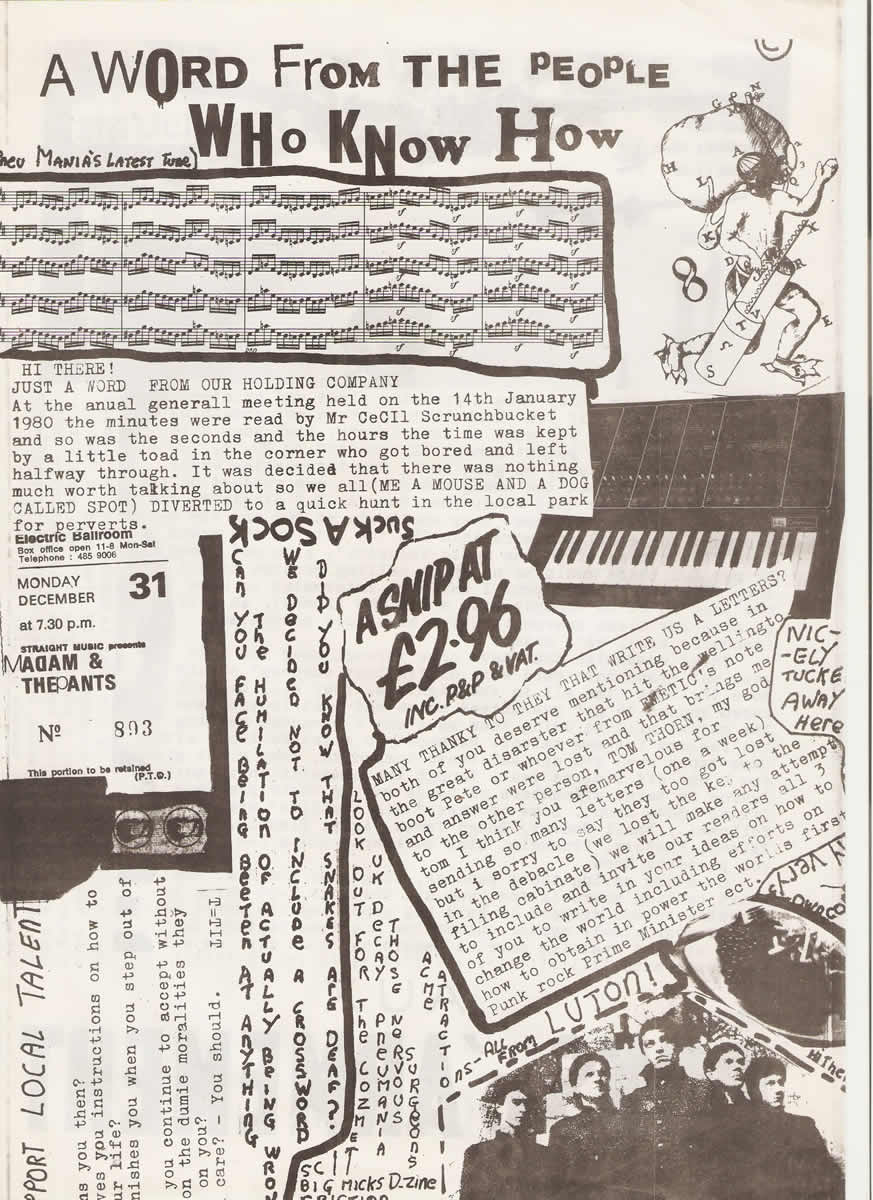 A WORD FROM THE PEOPLE
WHO KNOW HOW
MANIA'S LATEST TUNE)
HI THERE!
JUST A WORD FROM OUR HOLDING COMPANY
At the anual generall meeting held on the 14th January
1980 the minutes were read by Mr CeCIl Scrunchbucket
and so was the seconds and the hours the time was kept
by a little toad in the corner who got bored and left
halfway through. It was decided that there was nothing
much worth talking about so we all(ME A MOUSE AND A DOG
CALLED SPOT) DIVERTED to a quick hunt in the local park
for perverts.
Electric Ballroom
Box office open 11-8 Mon-Sat
Telephone : 485 9006
MONDAY
DECEMBER 31
at 7.30 p.m.
STRAIGHT MUSIC presents
MADAM &
THEPANTS
Nº 893
This portion to be retained
(P.T.O.)
SUCK A SOCK
CAN YOU FACE BEING BEETEN AT ANYTHING
THE HUMILATION OF ACTUALLY BEING WRON
WE DECIDED NOT TO INCLUDE A CROSSWORD
DID YOU KNOW THAT SNAKES ARE DEAF?.
A SNIP AT
£2.96
INC. P&P & VAT.
LOOK OUT FOR THE COZMET
UK DECAY PNEUMANIA
THOSE NERVOUS SURGEONS
ACME ATRACTIO
ns - ALL FROM LUTON!
BIG MICKS D-zine
MANY THANKY TO THEY THAT WRITE US A LETTERS?
both of you deserve mentioning because in
the great disarster that hit the wellingto
boot Pete or whoever from 's note
and answer were lost and that brings me
to the other person, TOM THORN, my god
tom I think you afemarvelous for
sending so many letters (one a week)
but i sorry to say they too got lost
in the debacle (we lost the key to the
filing cabinate) we will make any attempt
to include and invite our readers all 3
of you to write in your ideas on how to
change the world including efforts on
how to obtain in power the worlds first
Punk rock Prime Minister ect.
NIC-
-ELY
TUCKE
AWAY
HERE
PPORT LOCAL TALENT
ns you then?
ves you instructions on how to
ur life?
nishes you when you step out of
you continue to accept without
on the dumie moralities they
on you?
care? - You should.